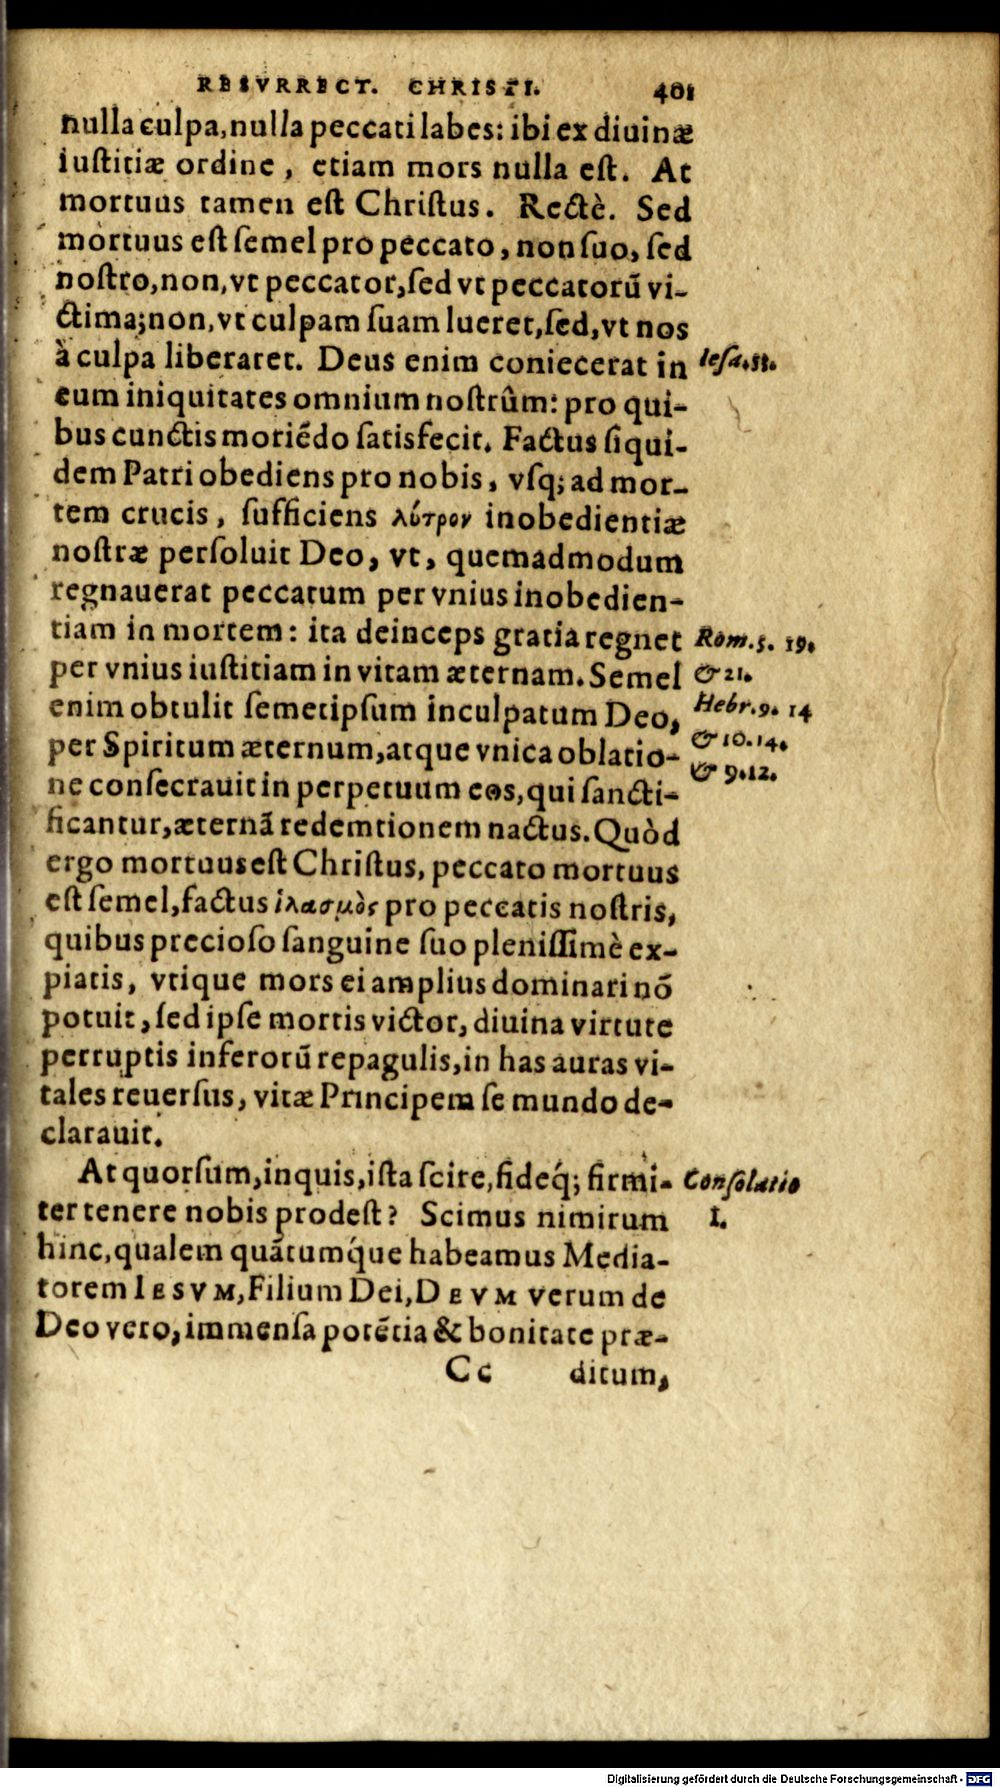 RESVRRECT. CHRISTI. 401
nulla culpa, nulla peccati labes: ibi ex diuinæ
iustitiæ ordine, etiam mors nulla est. At
mortuus tamen est Christus. Rectè. Sed
mortuus est semel pro peccato, non suo, sed
nostro, non, vt peccator, sed vt peccatorũ vi-
ctima; non, vt culpam suam lueret, sed, vt nos
à culpa liberaret. Deus enim coniecerat in Iesa.53.
eum iniquitates omnium nostrûm: pro qui-
bus cunctis moriẽdo satisfecit. Factus siqui-
dem Patri obediens pro nobis, vsq; ad mor-
tem crucis, sufficiens λύτρον inobedientiæ
nostræ persoluit Deo, vt, quemadmodum
regnauerat peccatum per vnius inobedien-
tiam in mortem: ita deinceps gratia regnet Rom.5. 19.
per vnius iustitiam in vitam æternam. Semel & 21.
enim obtulit semetipsum inculpatum Deo, Hebr.9. 14
per Spiritum æternum, atque vnica oblatio- & 10.14.
ne consecrauit in perpetuum eos, qui sancti- & 9.12.
ficantur, æternã redemtionem nactus. Quòd
ergo mortuus est Christus, peccato mortuus
est semel, factus ἱλασμὸς pro peccatis nostris,
quibus precioso sanguine suo plenissimè ex-
piatis, vtique mors ei amplius dominari nõ
potuit, sed ipse mortis victor, diuina virtute
perruptis inferorũ repagulis, in has auras vi-
tales reuersus, vitæ Principem se mundo de-
clarauit.
At quorsum, inquis, ista scire, fideq́; firmi- Consolatio
ter tenere nobis prodest? Scimus nimirum 1.
hinc, qualem quãtumq́ue habeamus Media-
torem IESVM, Filium Dei, DEVM verum de
Deo vero, immensa potẽtia & bonitate præ-
Cc ditum,
Digitalisierung gefördert durch die Deutsche Forschungsgemeinschaft - DFG